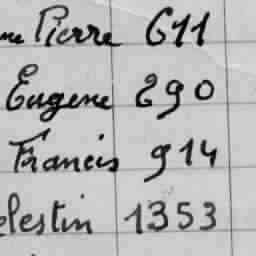 me Pierre 611
Eugene 290
Francis 914
elestin 1353